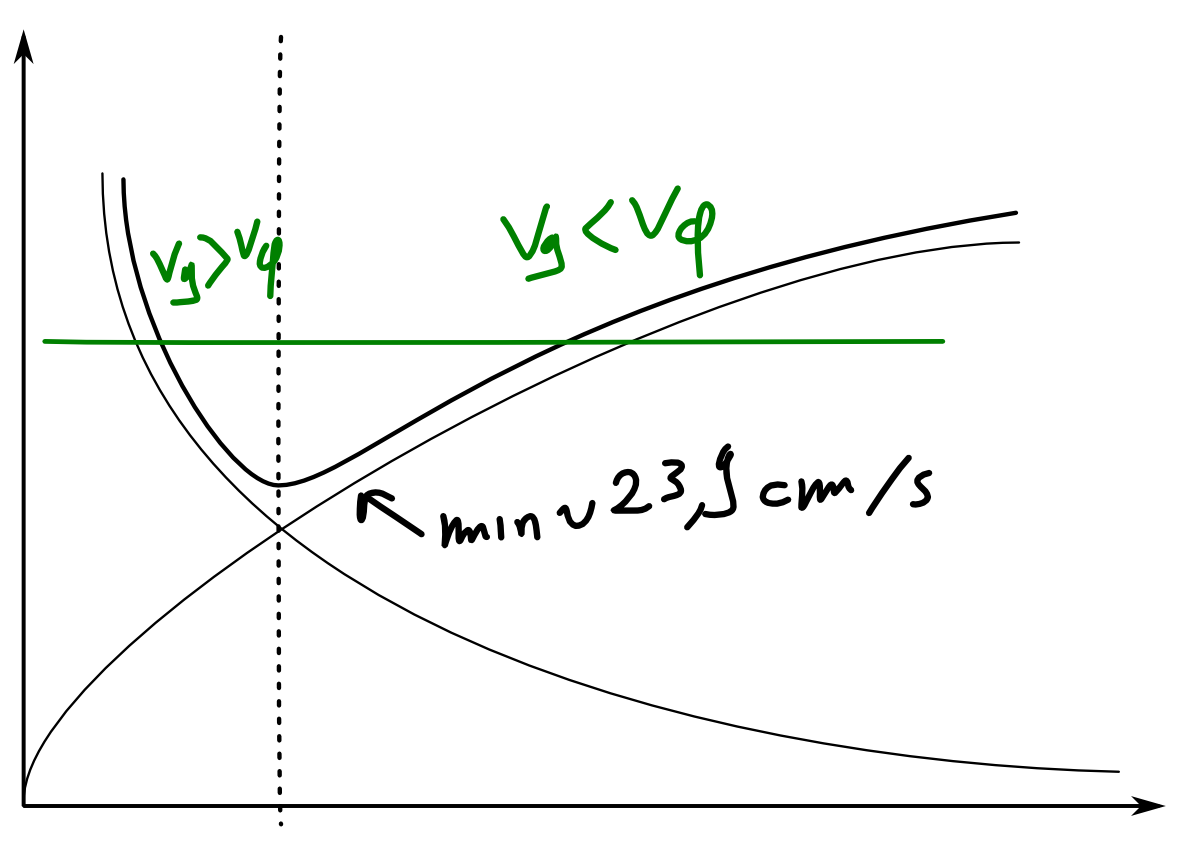 Vg > Vφ
Vg < Vφ
min ∪ 23,9 cm/s